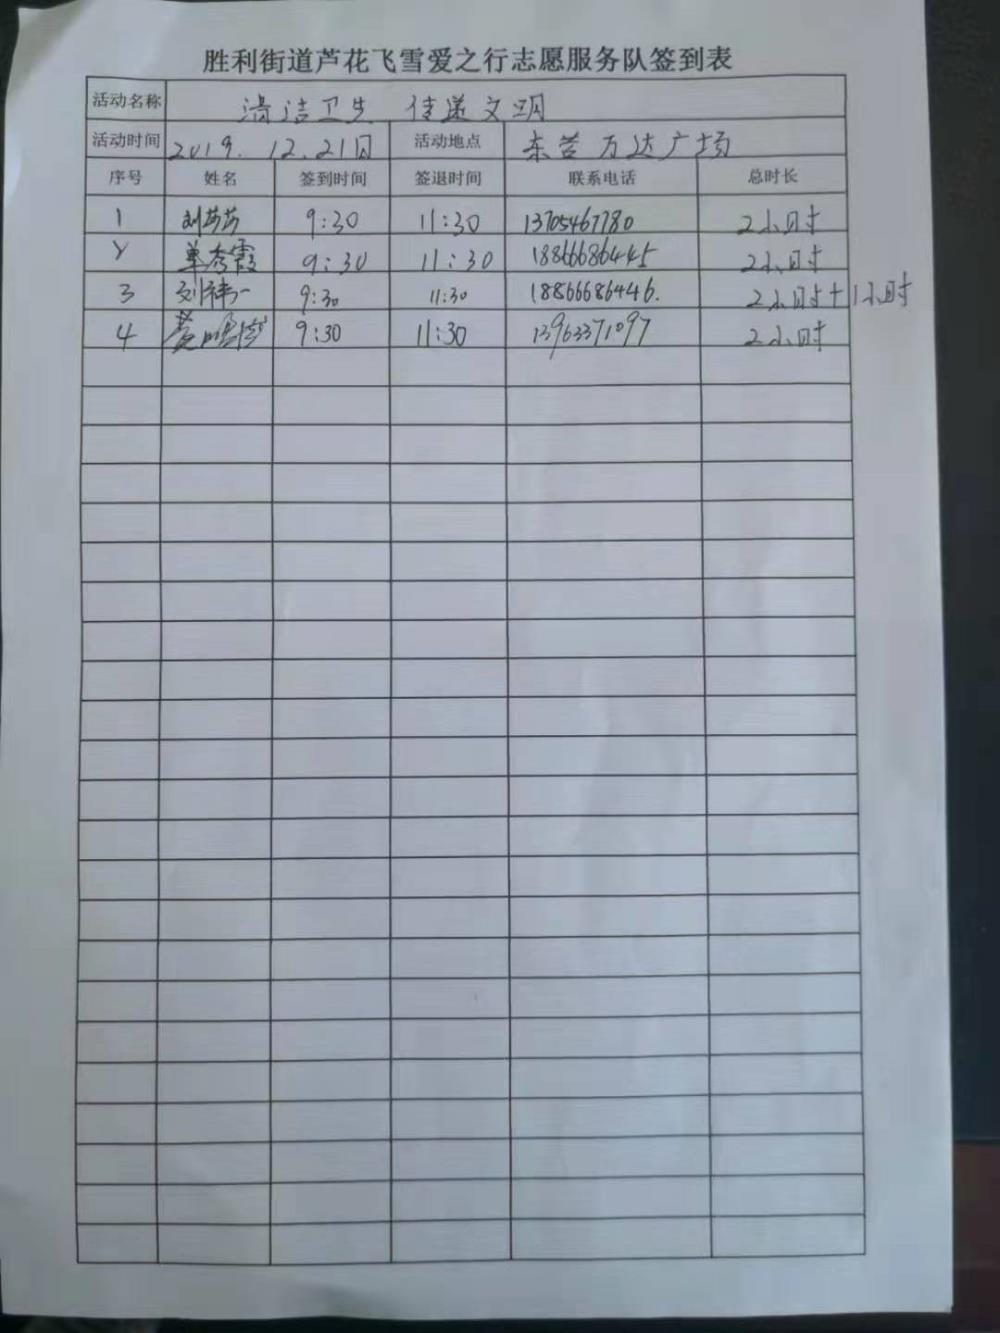 胜利街道芦花飞雪爱之行志愿服务队签到表
活动名称 清洁卫生 传递文明
活动时间 2019.12.21日 活动地点 东营万达广场
序号 姓名 签到时间 签退时间 联系电话 总时长
1 刘莎莎 9:30 11:30 13705467780 2小时
2 单秀霞 9:30 11:30 18866686445 2小时
3 刘祎一 9:30 11:30 18866686446. 2小时+1小时
4 9:30 11:30 13963371097 2小时